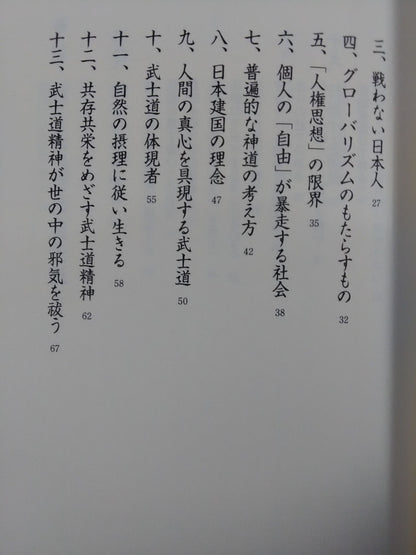 三、戦わない日本人 27
四、グローバリズムのもたらすもの 32
五、「人権思想」の限界 35
六、個人の「自由」が暴走する社会 38
七、普遍的な神道の考え方 42
八、日本建国の理念 47
九、人間の真心を具現する武士道 50
十、武士道の体現者 55
十一、自然の摂理に従い生きる 58
十二、共存共栄をめざす武士道精神 62
十三、武士道精神が世の中の邪気を祓う 67